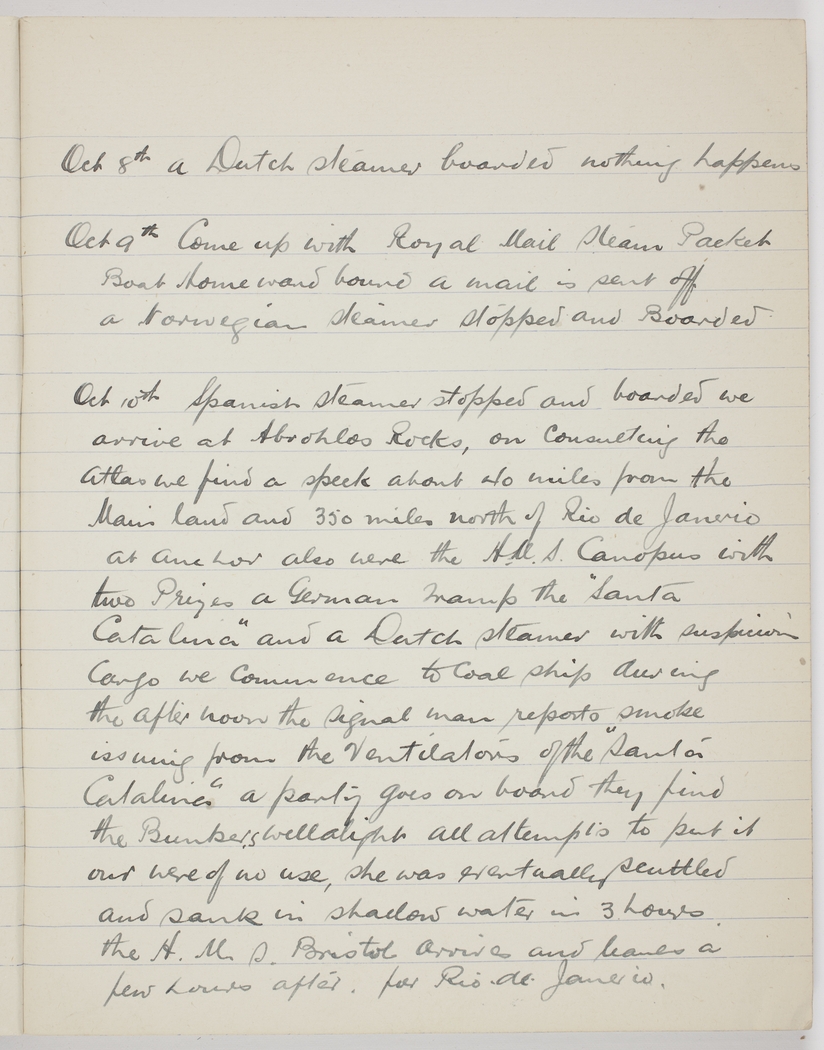 Oct 8th a Dutch steamer boarded nothing happens
Oct 9th Come up with Royal Mail Steam Packet
Boat Homeward bound a mail is sent off
a Norwegian steamer stopped and Boarded
Oct 10th Spanish steamer stopped and boarded we
arrive at Abrohlos Rocks, on Consulting the
Atlas we find a speck about 40 miles from the
Main land and 350 miles north of Rio de Janerio
at anchor also were the H.M.S. Canopus with
two Prizes a German tramp the "Santa
Catalina" and a Dutch steamer with suspicion
Cargo we commence to Coal ship during
the afternoon the signal man reports smoke
issuing from the Ventilators of the "Santa
Catalina" a party goes on board they find
the Bunkers well alight all attempts to put it
our were of no use, she was eventually scuttled
and sank in shallow water in 3 hours.
the H. M. S. Bristol arrives and leaves a
few hours after. for Rio de Janerio.